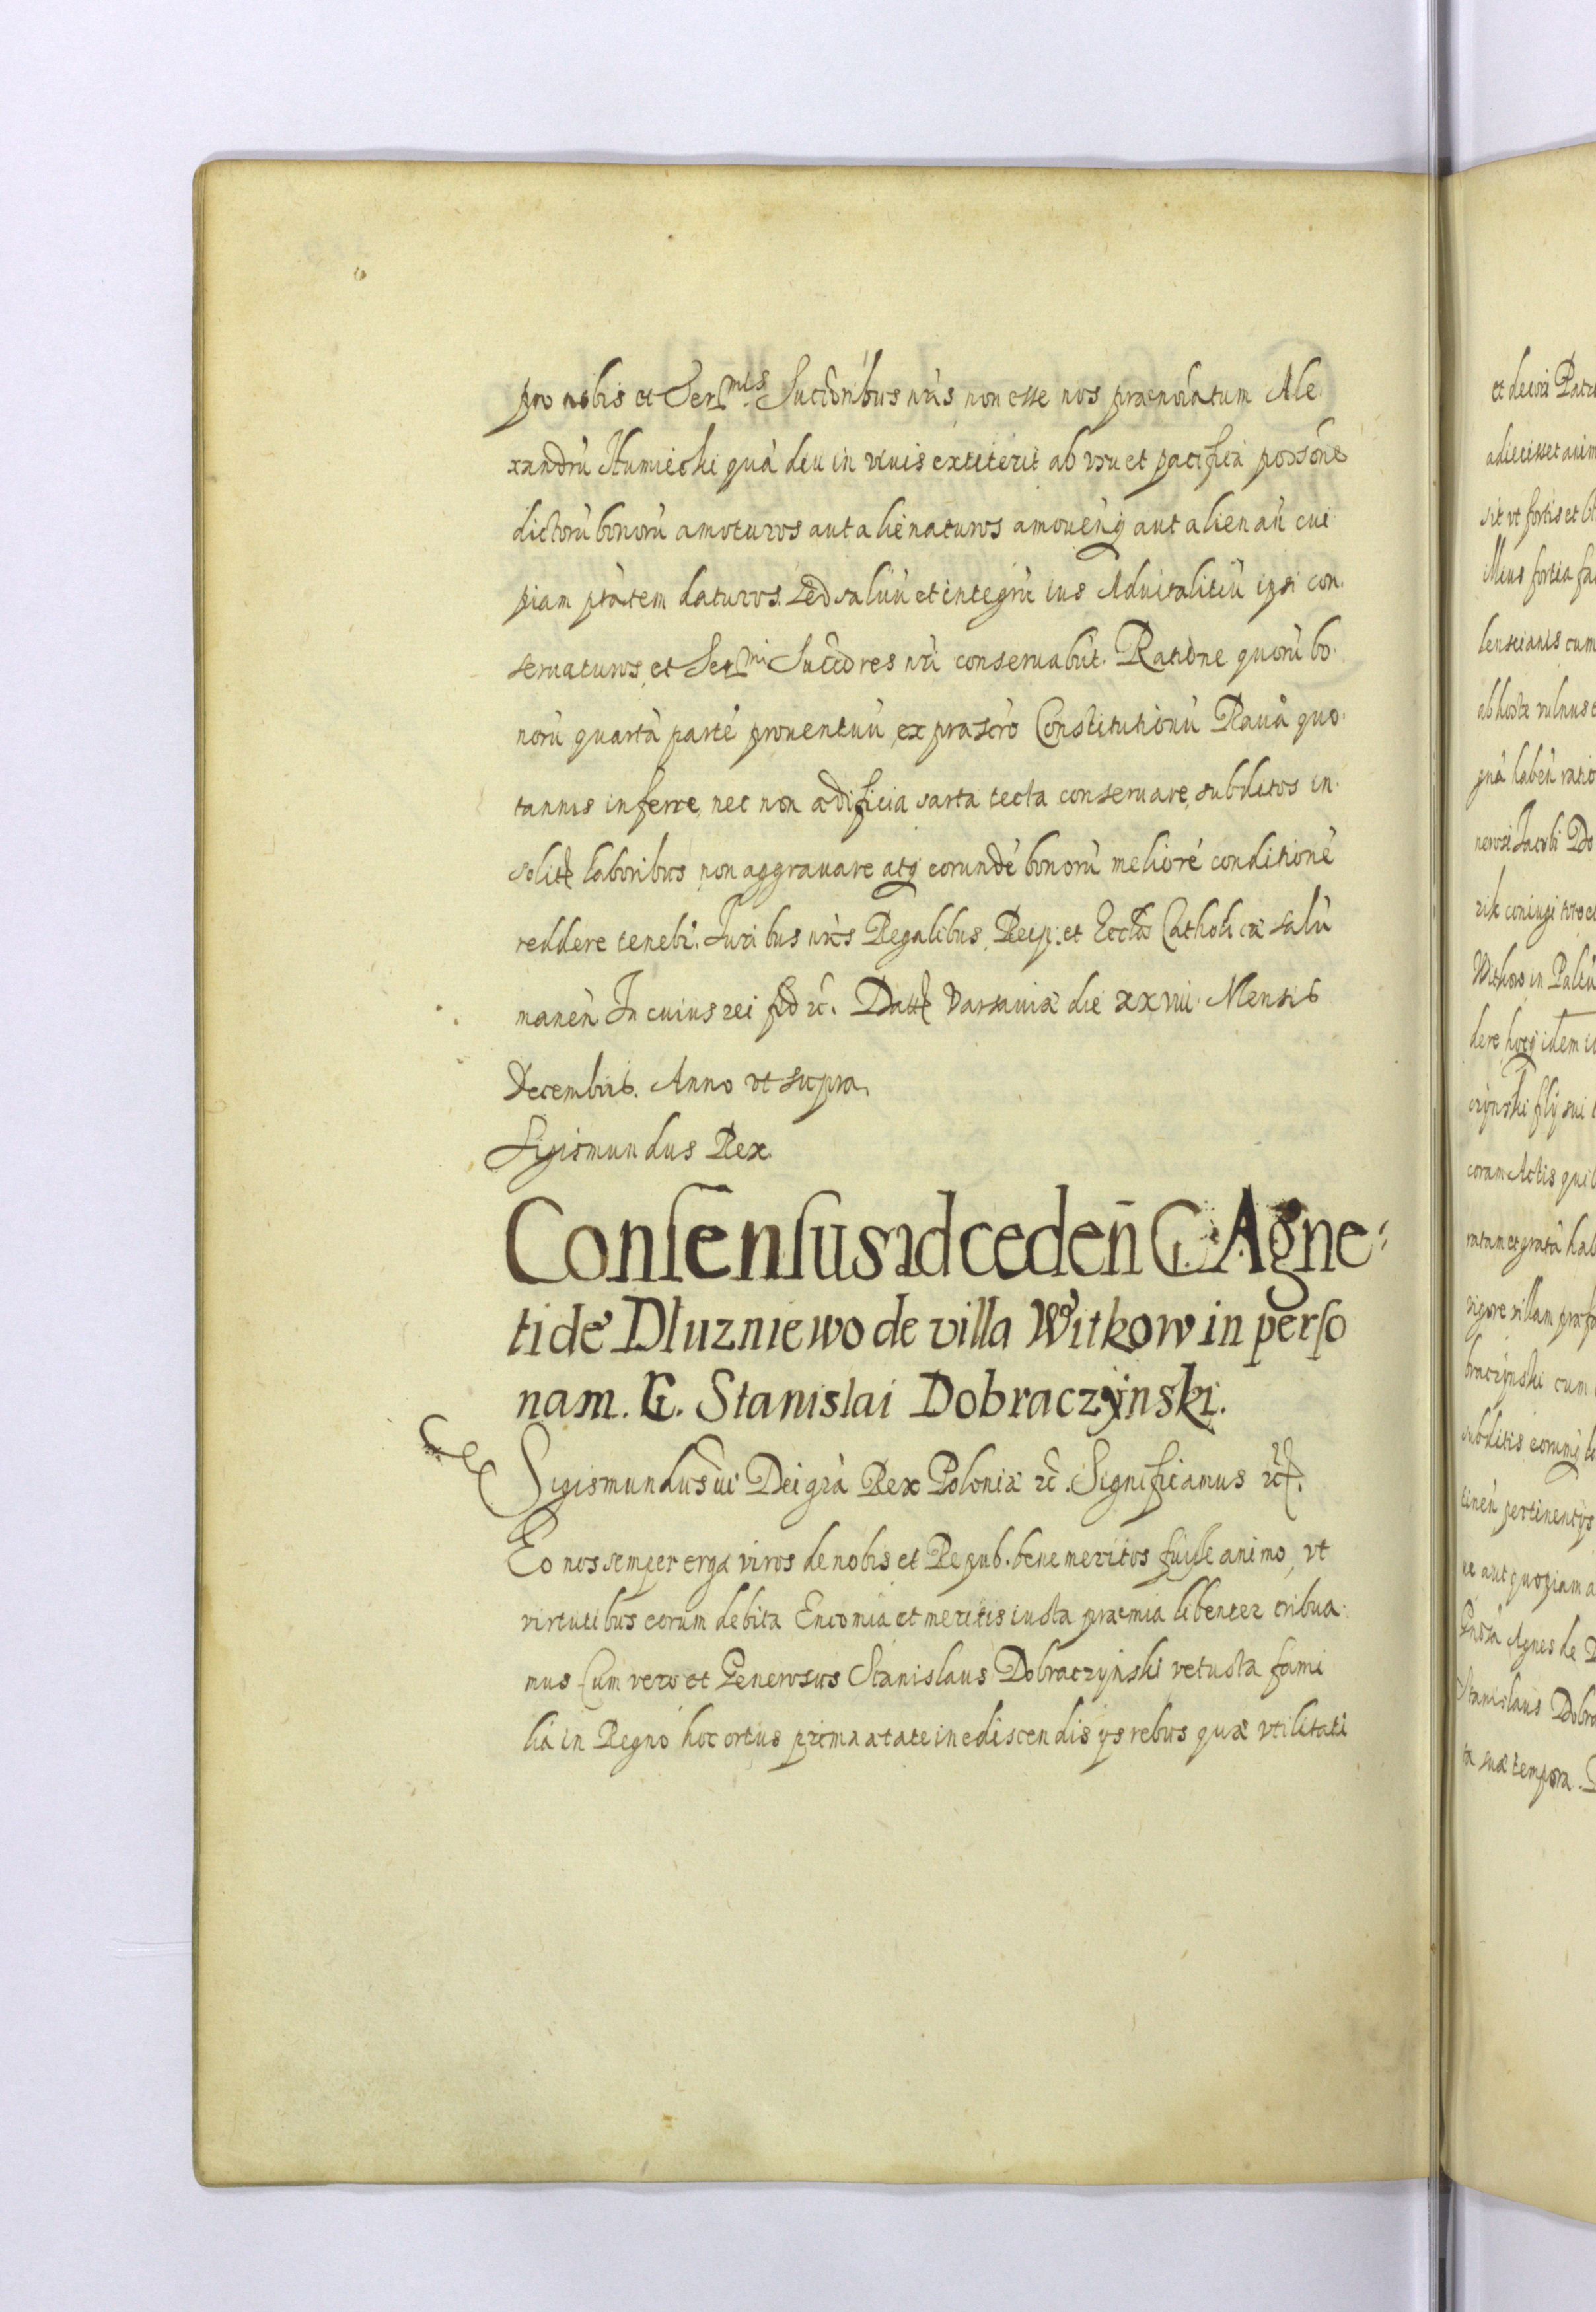 pro nobis et Serᵐⁱˢ Succōribus nr̃is non esse nos praenoīatum Ale.
xandrū Humiecki quā diu in viuis extiterit ab vsu et pacifica possōne
dictorū bonorū amoturos aut alienaturos amouenq̃ aut alienan̄ cui
piam ptātem daturos. Sed saluū et integrū ius Aduitalitiū ipsi con.
seruaturos, et Serᵐⁱ Succōres nr̃i conseruabūt. Ratiōne quorū bo.
norū quartā partē prouentuū ex praescr̃o Constitutionū Rauā quo.
tannis inferre, nec non ædificia sarta tecta conseruare, subditos in.
solitꝭ laboribus non aggrauare atq̃ eorundē bonorū meliorē conditionē
reddere tenebr̃. Juribus nr̃is Regalibus, Reip. et Eccłæ Catholicæ saluis
manen̄ In cuius rei fid rc̃. Datꝭ Varsauiæ die xxviii Mensis
Decembris. Anno vt supra.
Sigismundus Rex
Consensus ad ceden̄ G. Agne-
ti de Dluzniewo de villa Witkow in perso
nam. G. Stanislai Dobraczÿnski.
Sigismundus iii Dei grã Rex Poloniæ rc̃. Significamus rc̃.
Eo nos semper erga viros de nobis et Repub. bene meritos fuisse animo, vt
virtutibus eorum debita Encomia et meritis iusta praemia libenter tribua.
mus. Cum vero et Generosus Stanislaus Dobraczÿnski vetusta fami
lia in Regno hoc ortus prima ætate in ediscendis ijs rebus quæ vtilitati
et decori Patri
adiecisset anim
sit vt fortis et
illius fortia fa
lenscianis cum
ab hoste vulnus
gnā haben̄ ratio
nerosi Jacobi Do
Witkow in Palatin
dere hocq̃ idem
coram Actis
ratam et gratā hab
vigore villam præfa
braczÿnski cum
subditis eorumq̃
tinen̄ pertinentijs
ue aut quopiam a
Agnes de D
Stanislaus Dobra
suæ tempora.